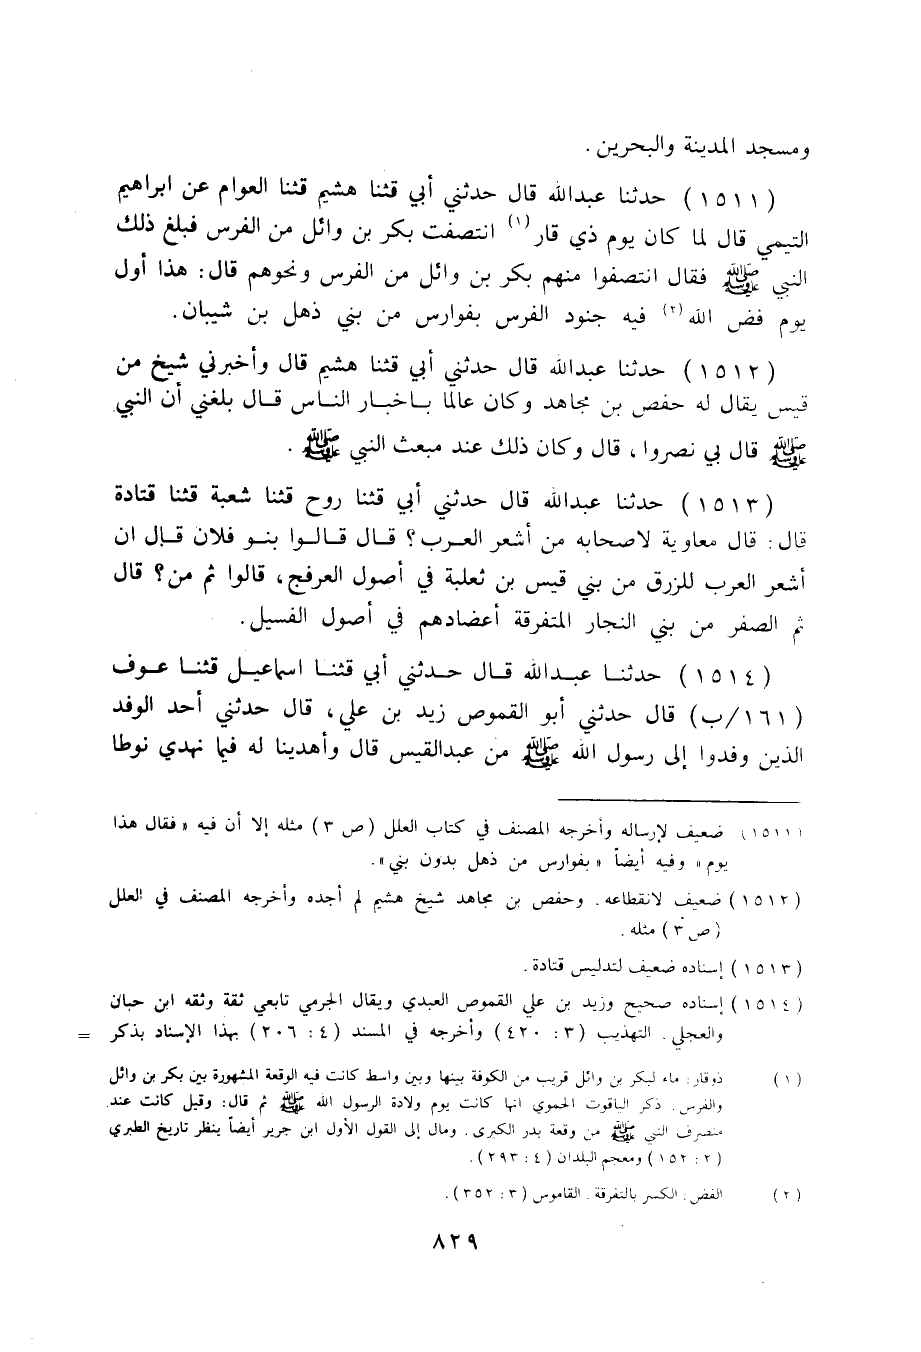 ومسجد المدينة والبحرين.
(١٥١١) حدثنا عبدالله قال حدثني أبي قثنا هشيم قثنا العوام عن ابراهيم
التيمي قال لما كان يوم ذي قار(١) انتصفت بكر بن وائل من الفرس فبلغ ذلك
النبي ﷺ فقال انتصفوا منهم بكر بن وائل من الفرس ونحوهم قال: هذا أول
يوم فض الله(٢) فيه جنود الفرس بفوارس من بني ذهل بن شيبان.
(١٥١٢) حدثنا عبدالله قال حدثني أبي قثنا هشيم قال وأخبرني شيخ من
قيس يقال له حفص بن مجاهد وكان عالما باخبار الناس قال بلغني أن النبي
ﷺ قال بي نصروا، قال وكان ذلك عند مبعث النبي ﷺ.
(١٥١٣) حدثنا عبدالله قال حدثني أبي قثنا روح قثنا شعبة قثنا قتادة
قال: قال معاوية لاصحابه من أشعر العرب؟ قال قالوا بنو فلان قال ان
أشعر العرب للزرق من بني قيس بن ثعلبة في أصول العرفج، قالوا ثم من؟ قال
ثم الصفر من بني النجار المتفرقة أعضادهم في أصول الفسيل.
(١٥١٤) حدثنا عبدالله قال حدثني أبي قثنا اسماعيل قثنا عوف
(١٦١/ب) قال حدثني أبو القموص زيد بن علي، قال حدثني أحد الوفد
الذين وفدوا إلى رسول الله ﷺ من عبدالقيس قال وأهدينا له فيما نهدي نوطا
(١٥١١) ضعيف لإرساله وأخرجه المصنف في كتاب العلل (ص ٣) مثله إلا أن فيه «فقال هذا
يوم» وفيه أيضاً «بفوارس من ذهل بدون بني».
(١٥١٢) ضعيف لانقطاعه. وحفص بن مجاهد شيخ هشيم لم أجده وأخرجه المصنف في العلل
(ص ٣) مثله.
(١٥١٣) إسناده ضعيف لتدليس قتادة.
(١٥١٤) إسناده صحيح وزيد بن علي القموص العبدي ويقال الجرمي تابعي ثقة وثقه ابن حبان
والعجلي. التهذيب (٣: ٤٢٠) وأخرجه في المسند (٤: ٢٠٦) بهذا الإسناد بذكر =
(١) ذوقار: ماء لبكر بن وائل قريب من الكوفة بينها وبين واسط كانت فيه الوقعة المشهورة بين بكر بن وائل
والفرس. ذكر الياقوت الحموي انها كانت يوم ولادة الرسول الله ﷺ ثم قال: وقيل كانت عند
منصرف النبي ﷺ من وقعة بدر الكبرى. ومال إلى القول الأول ابن جرير أيضاً ينظر تاريخ الطبري
(٢: ١٥٢) ومعجم البلدان (٤: ٢٩٣).
(٢) الفض: الكسر بالتفرقة. القاموس (٣: ٣٥٢).
٨٢٩